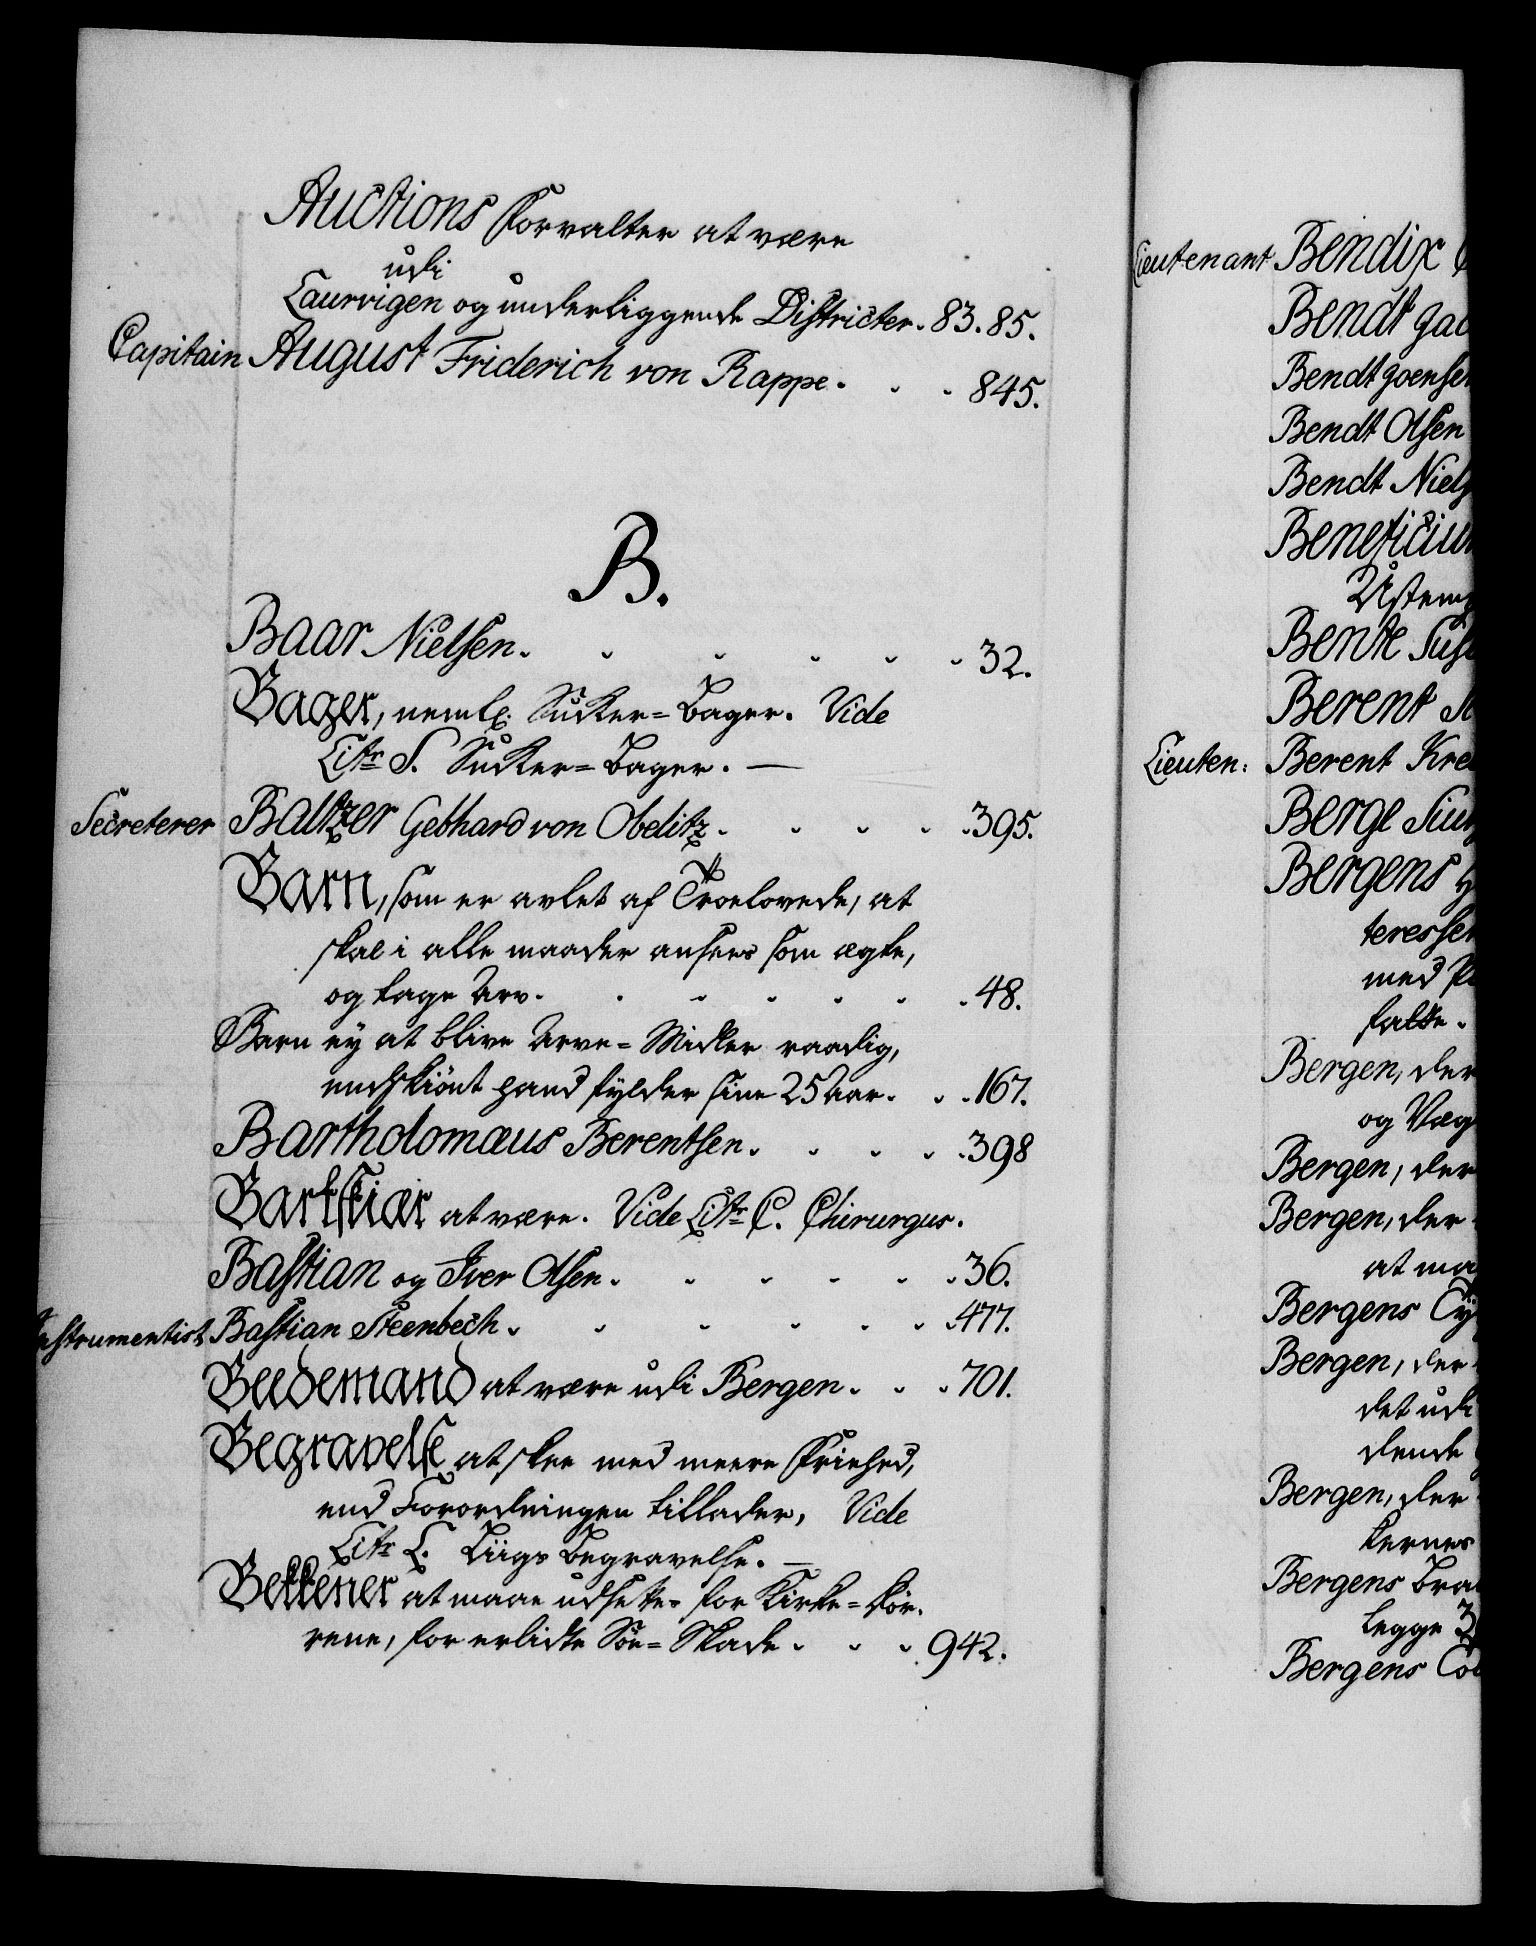 Auctions Forvalter at være
udi
Laurvigen og underliggende Districter. 83. 85.
Capitain August Friderich von Rappe. 845.
B.
Baar Nielsen. 32.
Bager, nemlig Sukker-Bager. Vide
Litr S. Sukker-Bager.
Secreterer Baltzer Gebhard von Obelitz. 395.
Barn, som er avlet af Troelovede, at
skal i alle maader ansees som ægte,
og tage Arv. 48.
Barn ey at blive Arve-Midler raadig,
endskiönt hand fylder sine 25 Aar. 167.
Bartholomæus Berentsen. 398
Bartskiær at være. Vide Litr C. Chirurgus.
Bastian og Iver Olsen. 36.
Instrumentist Bastian Steenbech. 477.
Beedemand at være udi Bergen. 701.
Begravelse at skee med meere Friehed,
end Forordningen tillader, Vide
Litr L. Liigs Begravelse.
Bekkener at maae udsættes for Kirke-Dör-
rene, for erlidte Söe-Skade. 942.
Lieutenant Bendix
Bendt
Bendt
Bendt Olsen
Bendt
Bente
Berent
Lieuten: Berent
Berge
Bergens
med
falde.
Bergen, der
og
Bergen, der
Bergen, der
at
Bergens
Bergen, der
det udi
Bergen, der
Bergens
legge
Bergens